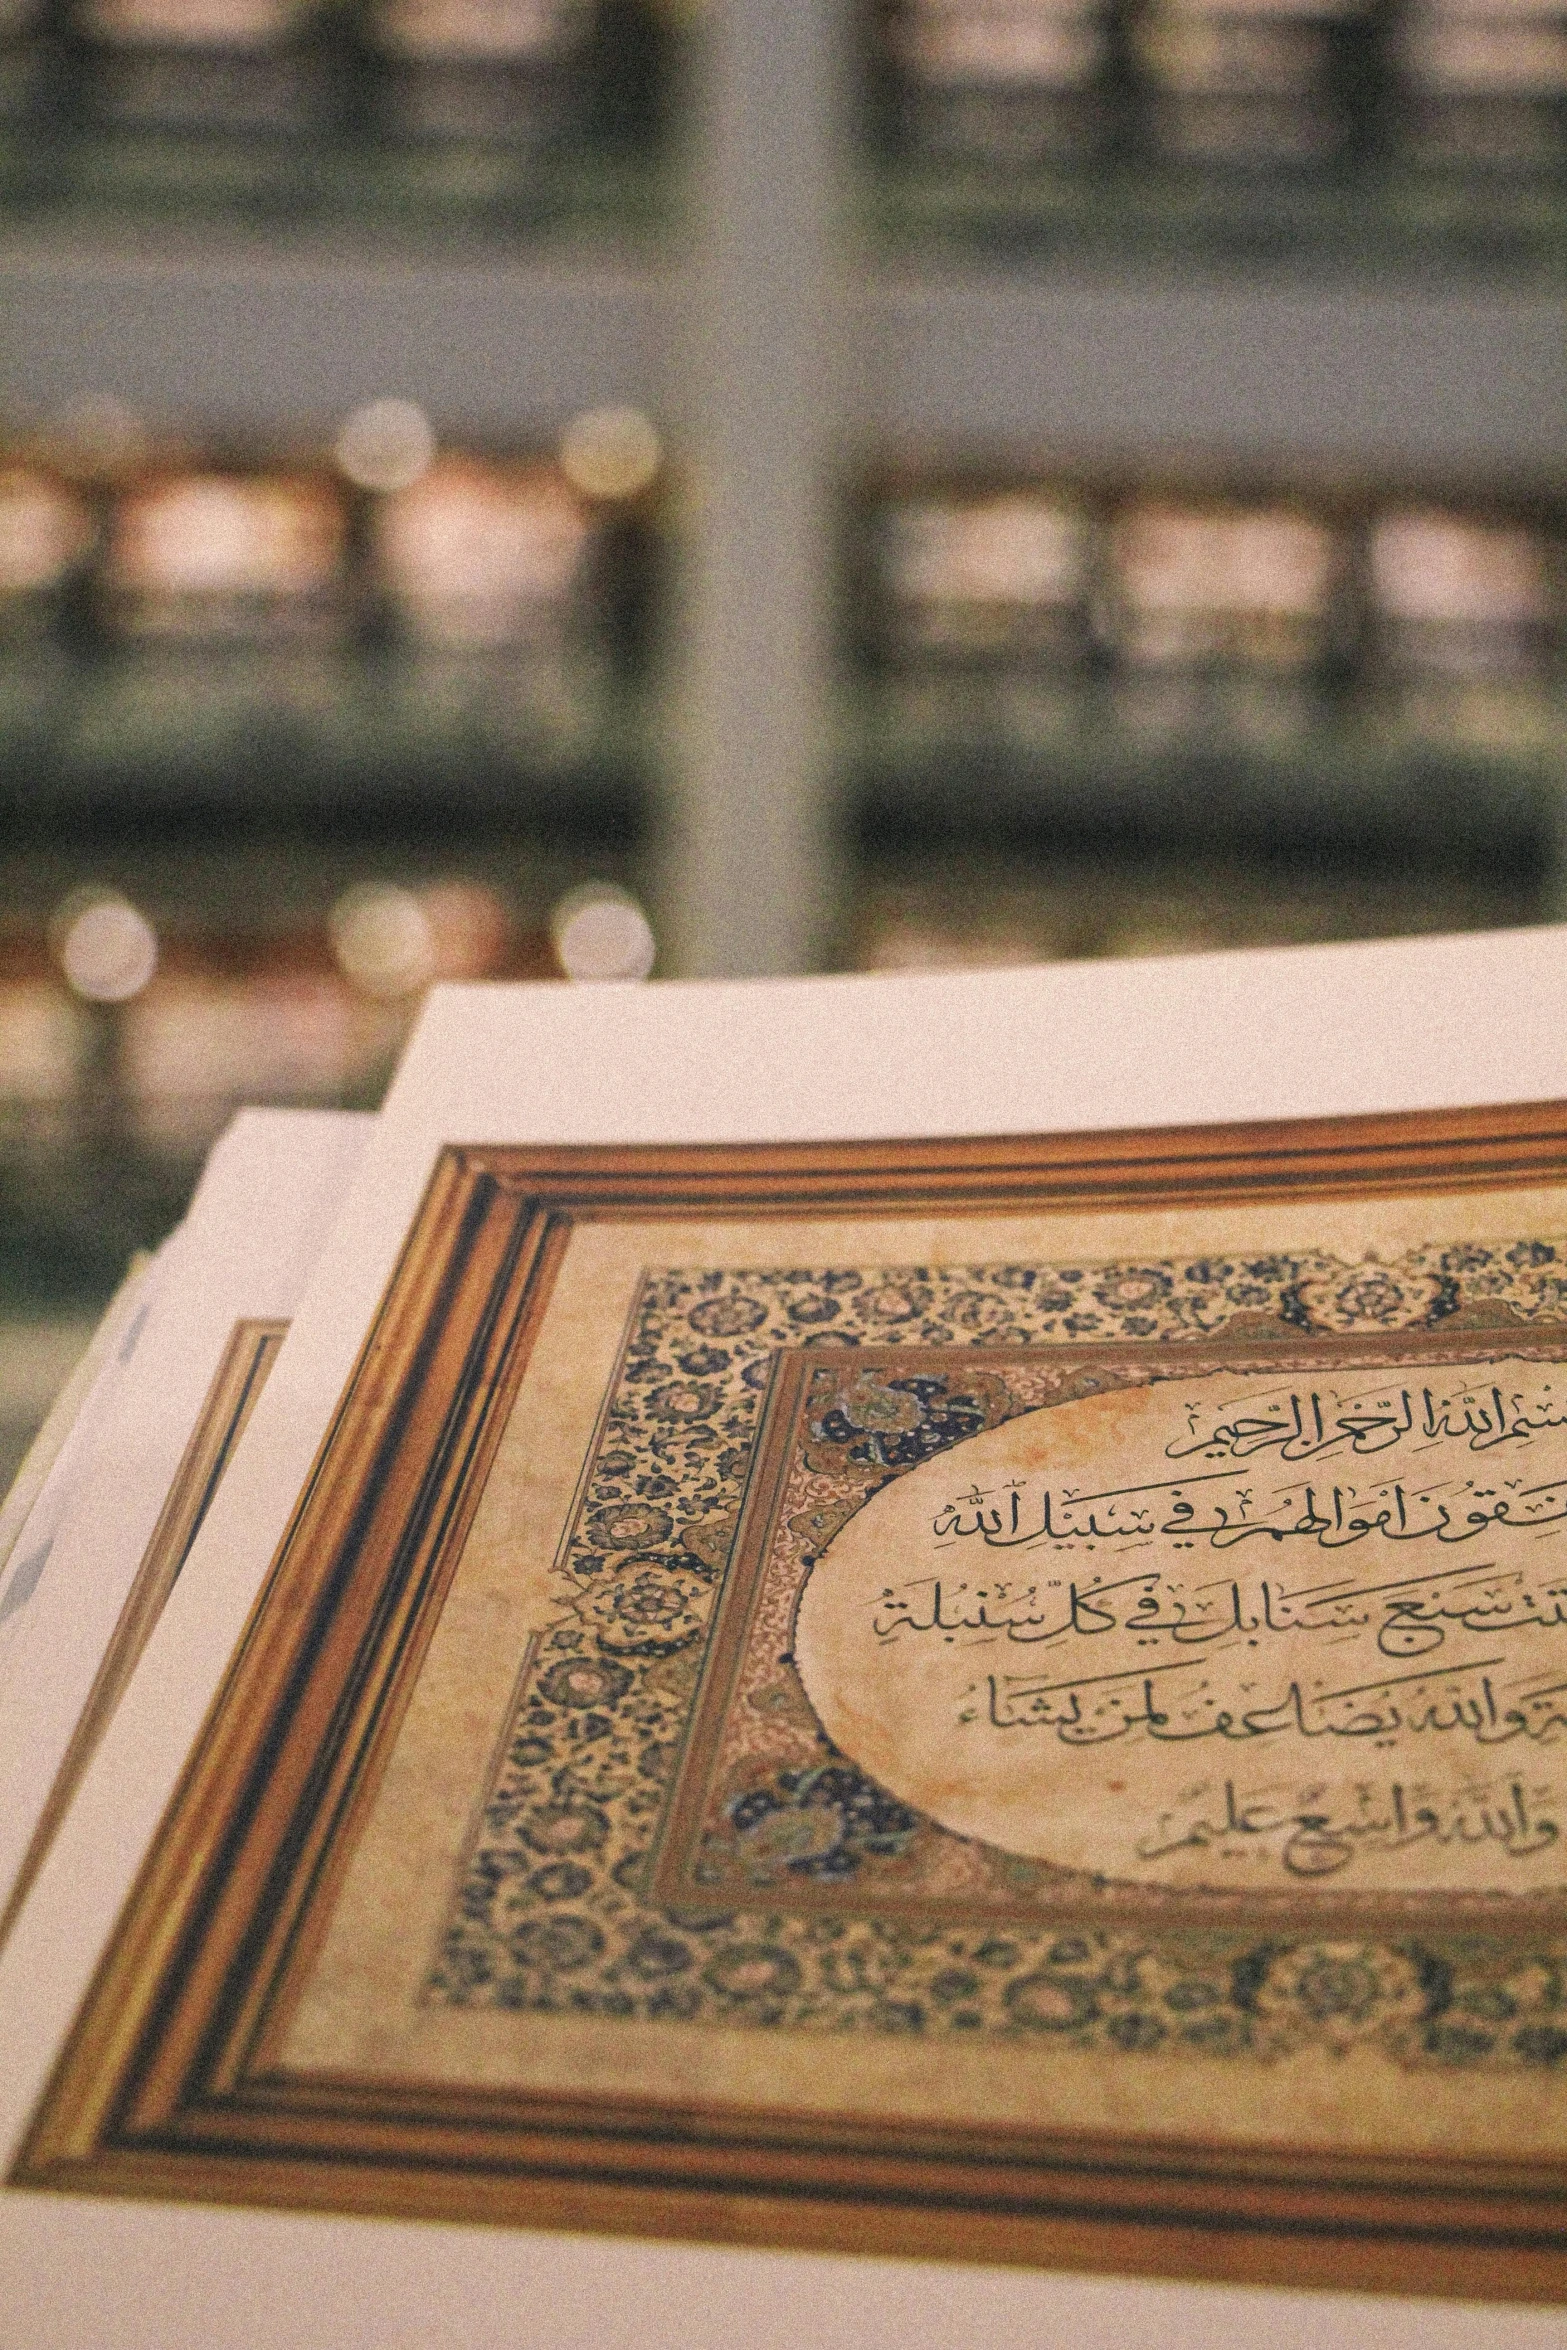 بِسْمِ اللَّهِ الرَّحْمَنِ الرَّحِيمِ
يُنفِقُونَ أَمْوَالَهُمْ فِي سَبِيلِ اللَّهِ
سَبْعَ سَنَابِلَ فِي كُلِّ سُنْبُلَةٍ
وَاللَّهُ يُضَاعِفُ لِمَنْ يَشَاءُ
وَاللَّهُ وَاسِعٌ عَلِيمٌ